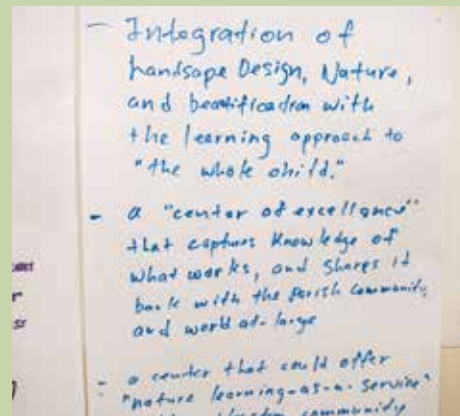 - Integration of
Landsape Design, Nature,
and beatification with
the learning approach to
"the whole child."
- a "center of excellance"
that captures Knowledge of
what works, and shares it
back with the Parish Community,
and world at-large
- a center that could offer
"nature learning-as-a-service"
community